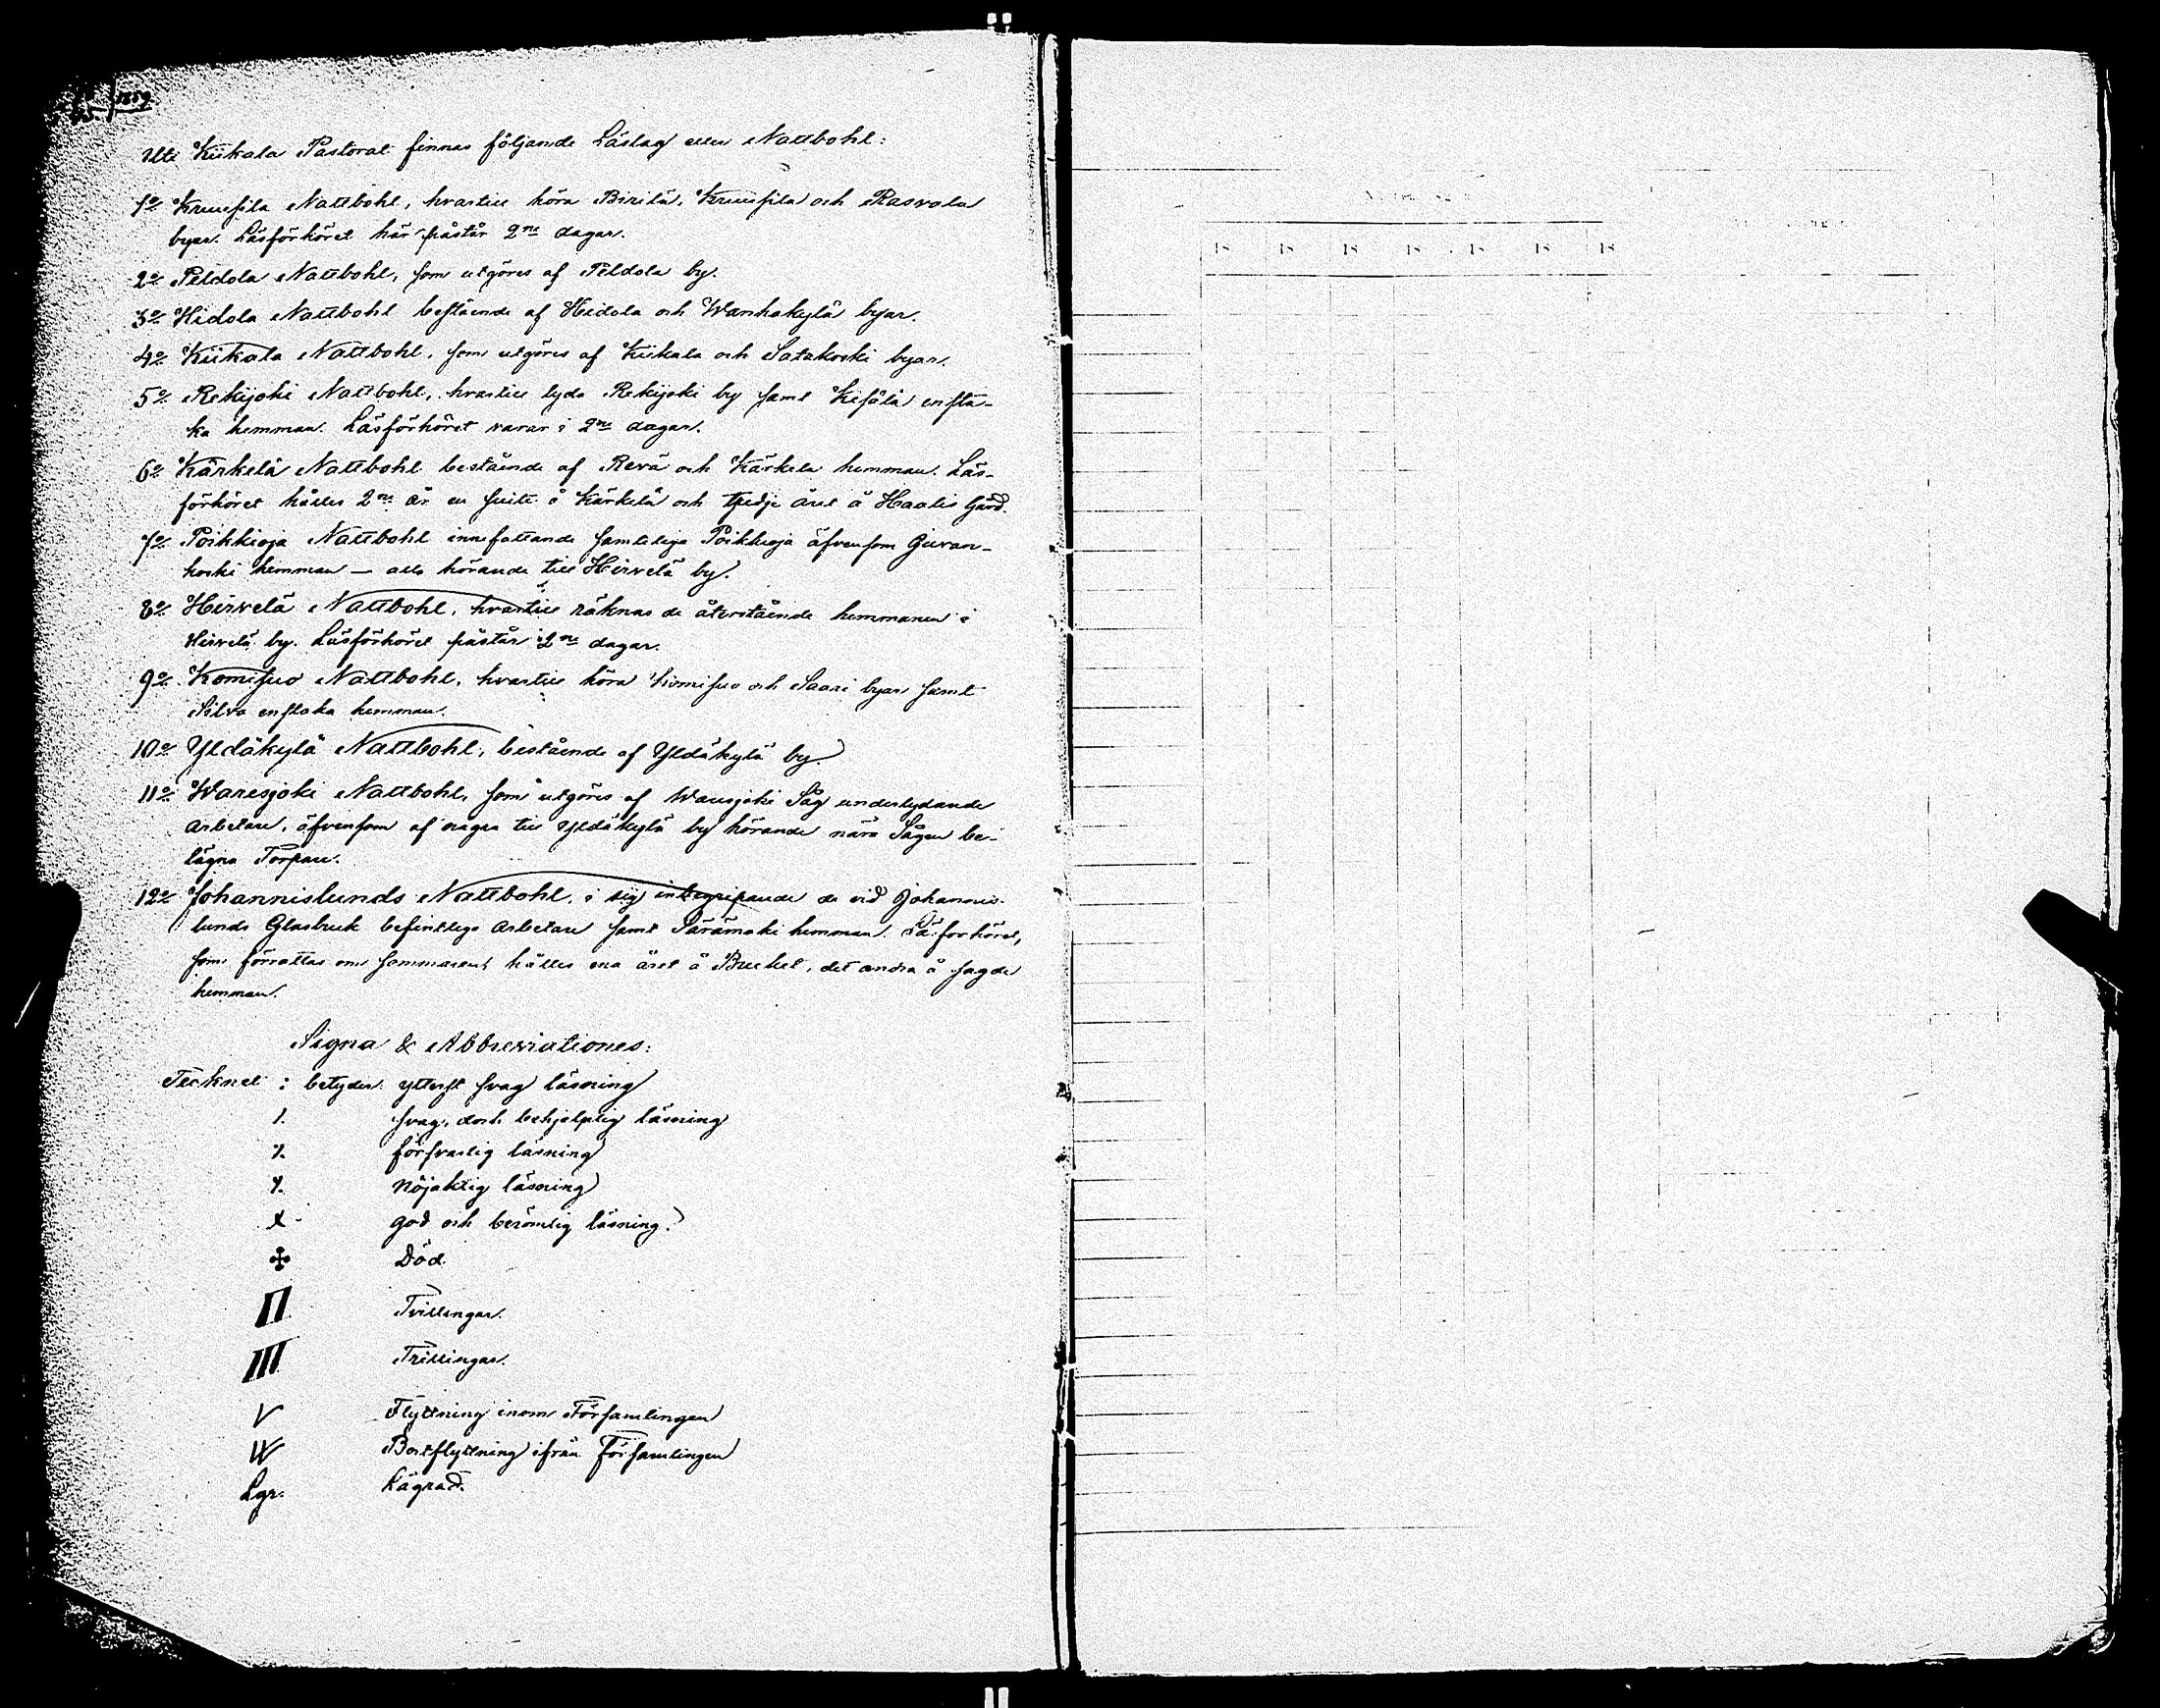 1859
Uti Kiikala Pastorat finnas följande Läslag eller Nattbohl:
1o Kruusila Nattbohl, hvartill höra Pirilä, Kruusila och Rasvala
byar. Läsförhöret här påstår 2ne dagar.
2o Peldola Nattbohl, som utgöres af Peldola by.
3o Hidola Nattbohl bestående af Hidola och Wanhakylä byar.
4o Kiikala Nattbohl, som utgöres af Kiikala och Satakoski byar.
5o Rekijoki Nattbohl, hvartill lyda Rekijoki by samt Kesälä ensta-
ka hemman. Läsförhöret varar i 2ne dagar.
6o Kärkelä Nattbohl bestående af Revä och Kärkelä hemman. Läs-
förhöret hålles 2ne år en suite å Kärkelä och tredje året å Haalis Gård.
7o Poikkioja Nattbohl innefattande samtelige Poikkioja äfvensom
koski hemman — alla hörande till Hirvelä by.
8o Hirvelä Nattbohl, hvartill räknas de återstående hemmanen i
Hirvelä by. Läsförhöret påstår i 2ne dagar.
9o Komisuo Nattbohl, hvartill höra Komisuo och Saari byar samt
Silva enstaka hemman.
10o Yldäkylä Nattbohl, bestående af Yldäkylä by.
11o Waresjoki Nattbohl, som utgöres af Waresjoki Såg underlydande
arbetare, äfvensom af några till Yldäkylä by hörande nära Sågen be-
lägna Torpare.
12o Johannislunds Nattbohl, i sig inbegripande de vid Johannis-
lunds Glasbruk befintlige arbetare samt Särämäki hemman. Läsförhöret,
som förrättas om sommaren, hålles ena året å Bruket, det andra å sagde
hemman.
Signa & Abbreviationes:
Tecknet : betyder ytterst svag läsning
/. svag, dock behjelplig läsning
försvarlig läsning
nöjaktig läsning
god och berömlig läsning.
Död.
II Tvillingar.
III Trillingar.
V Flyttning inom Församlingen
W Bortflyttning ifrån Församlingen
Lgr. Lägrad.
18 18 18 18 18 18 18